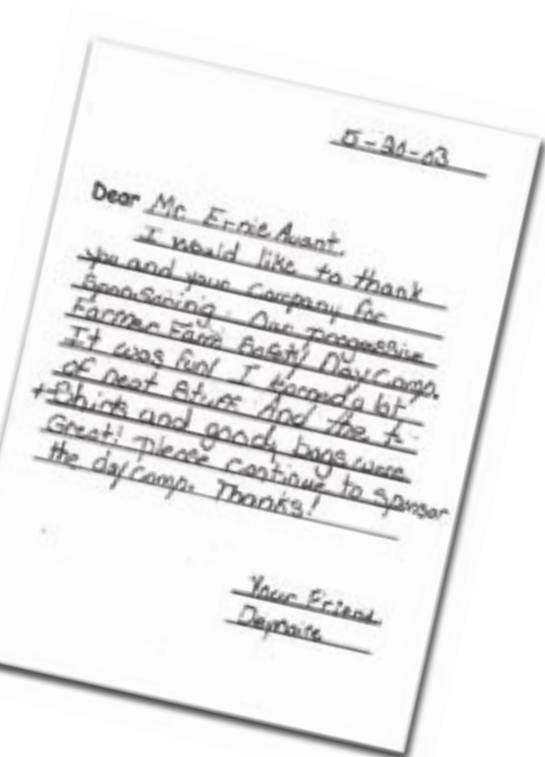 5-20-03
Dear Mr. Ernie Avant,
I would like to thank
you and your company for
Sponsoring Our progressive
Farmer Farm Safety Day Camp.
It was fun! I learned a lot
of neat stuff And the t-
+ Shirts and goody bags were
Great! Please continue to sponsor
the day camp. Thanks!
Your Friend